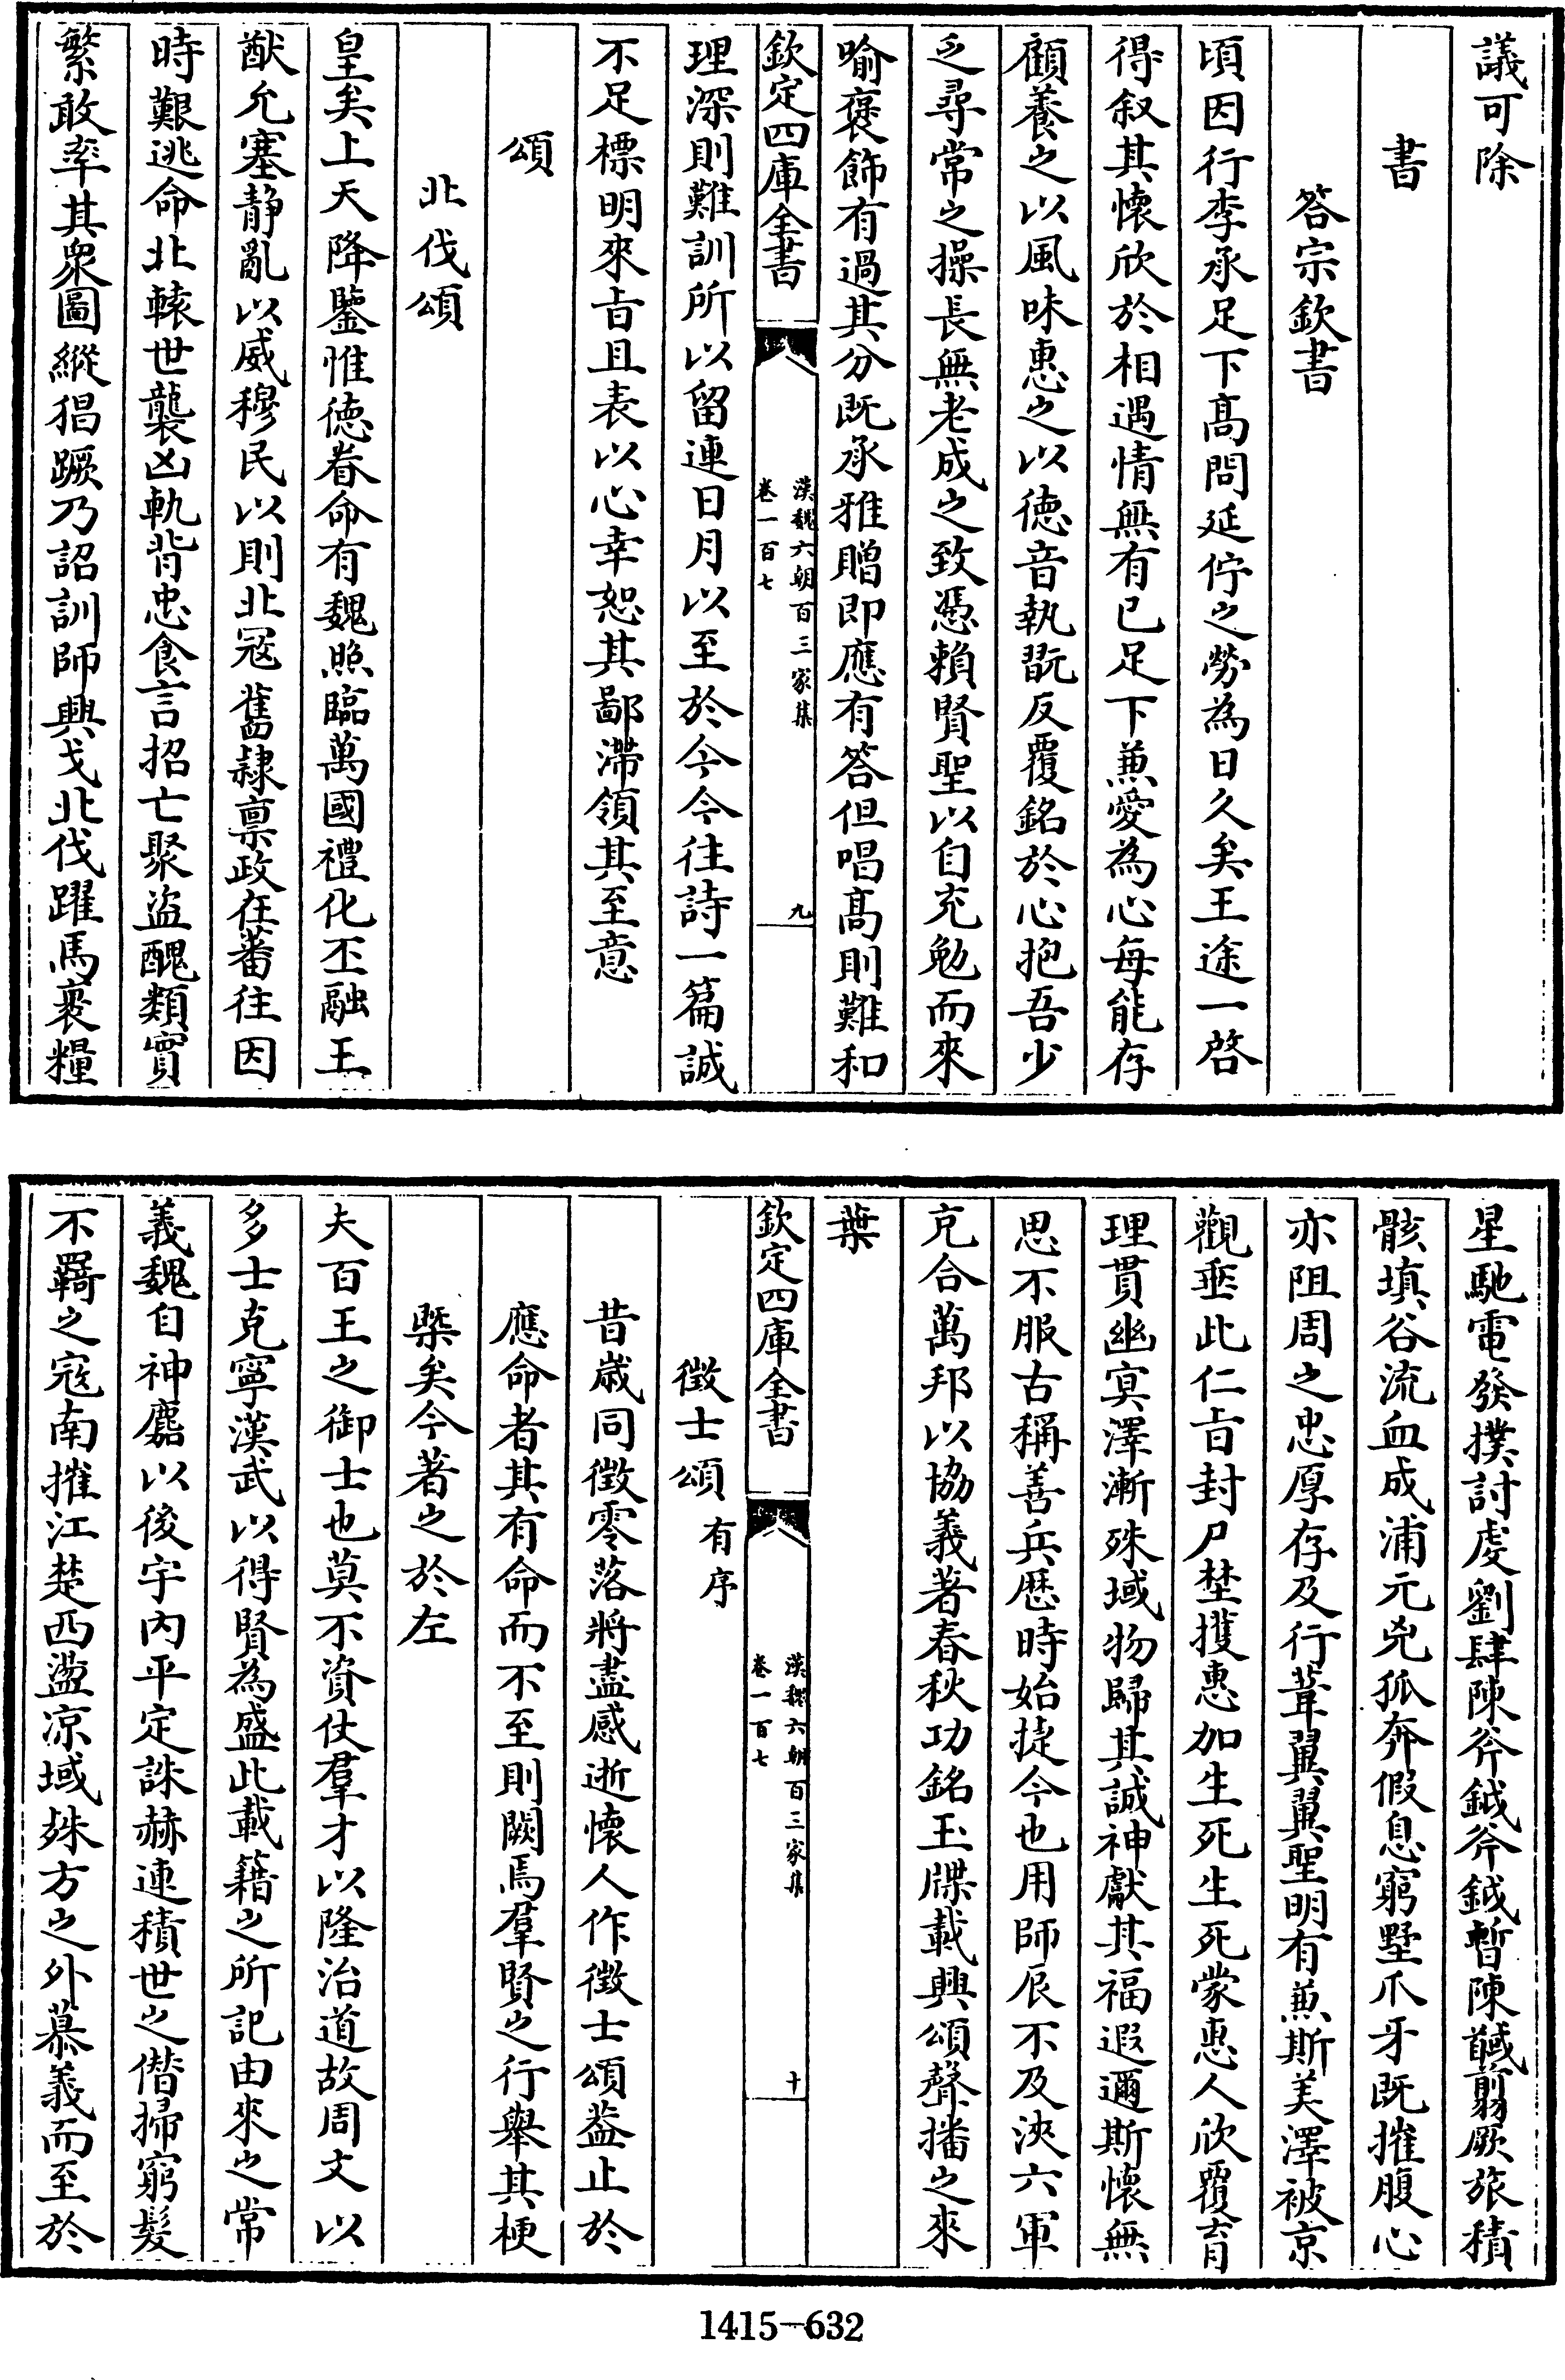 議可除
書
答宗欽書
頃因行李承足下髙問延佇之勞為日久矣王途一啓
得叙其懐欣於相遇情無有已足下兼愛為心每能存
顧養之以風味惠之以徳音執翫反覆銘於心抱吾少
乏尋常之操長無老成之致憑賴賢聖以自充勉而來
喻褒飾有過其分既承雅贈即應有答但唱髙則難和
欽定四庫全書
漢魏六朝百三家集
卷一百七
九
理深則難訓所以留連日月以至於今今往詩一篇誠
不足標明來㫖且表以心幸恕其鄙滯領其至意
頌
北伐頌
皇矣上天降鑒惟徳眷命有魏照臨萬國禮化丕融王
猷允塞静亂以威穆民以則北冦舊隸禀政在蕃往因
時艱逃命北轅世襲凶軌背忠食言招亡聚盜醜類實
繁敢率其衆圖縱猖蹶乃詔訓師興戈北伐躍馬裹糧
星馳電發撲討䖍劉肆陳斧鉞斧鉞暫陳馘翦厥旅積
骸填谷流血成浦元兇狐奔假息窮墅爪牙既摧腹心
亦阻周之忠厚存及行葦翼翼聖明有兼斯美澤被京
觀垂此仁㫖封尸塟攫惠加生死生死蒙惠人欣覆育
理貫幽冥澤漸殊域物歸其誠神獻其福遐邇斯懷無
思不服古稱善兵厯時始捷今也用師辰不及浹六軍
克合萬邦以協義著春秋功銘玉牒載興頌聲播之來
葉
欽定四庫全書
漢魏六朝百三家集
卷一百七
十
徴士頌有序
昔嵗同徴零落將盡感逝懷人作徴士頌葢止於
應命者其有命而不至則闕焉羣賢之行舉其梗
槩矣今著之於左
夫百王之御士也莫不資仗羣才以隆治道故周文以
多士克寧漢武以得賢為盛此載籍之所記由來之常
義魏自神䴥以後宇内平定誅赫連積世之僭掃窮髮
不羈之冦南摧江楚西盪凉域殊方之外慕義而至於
1415-632